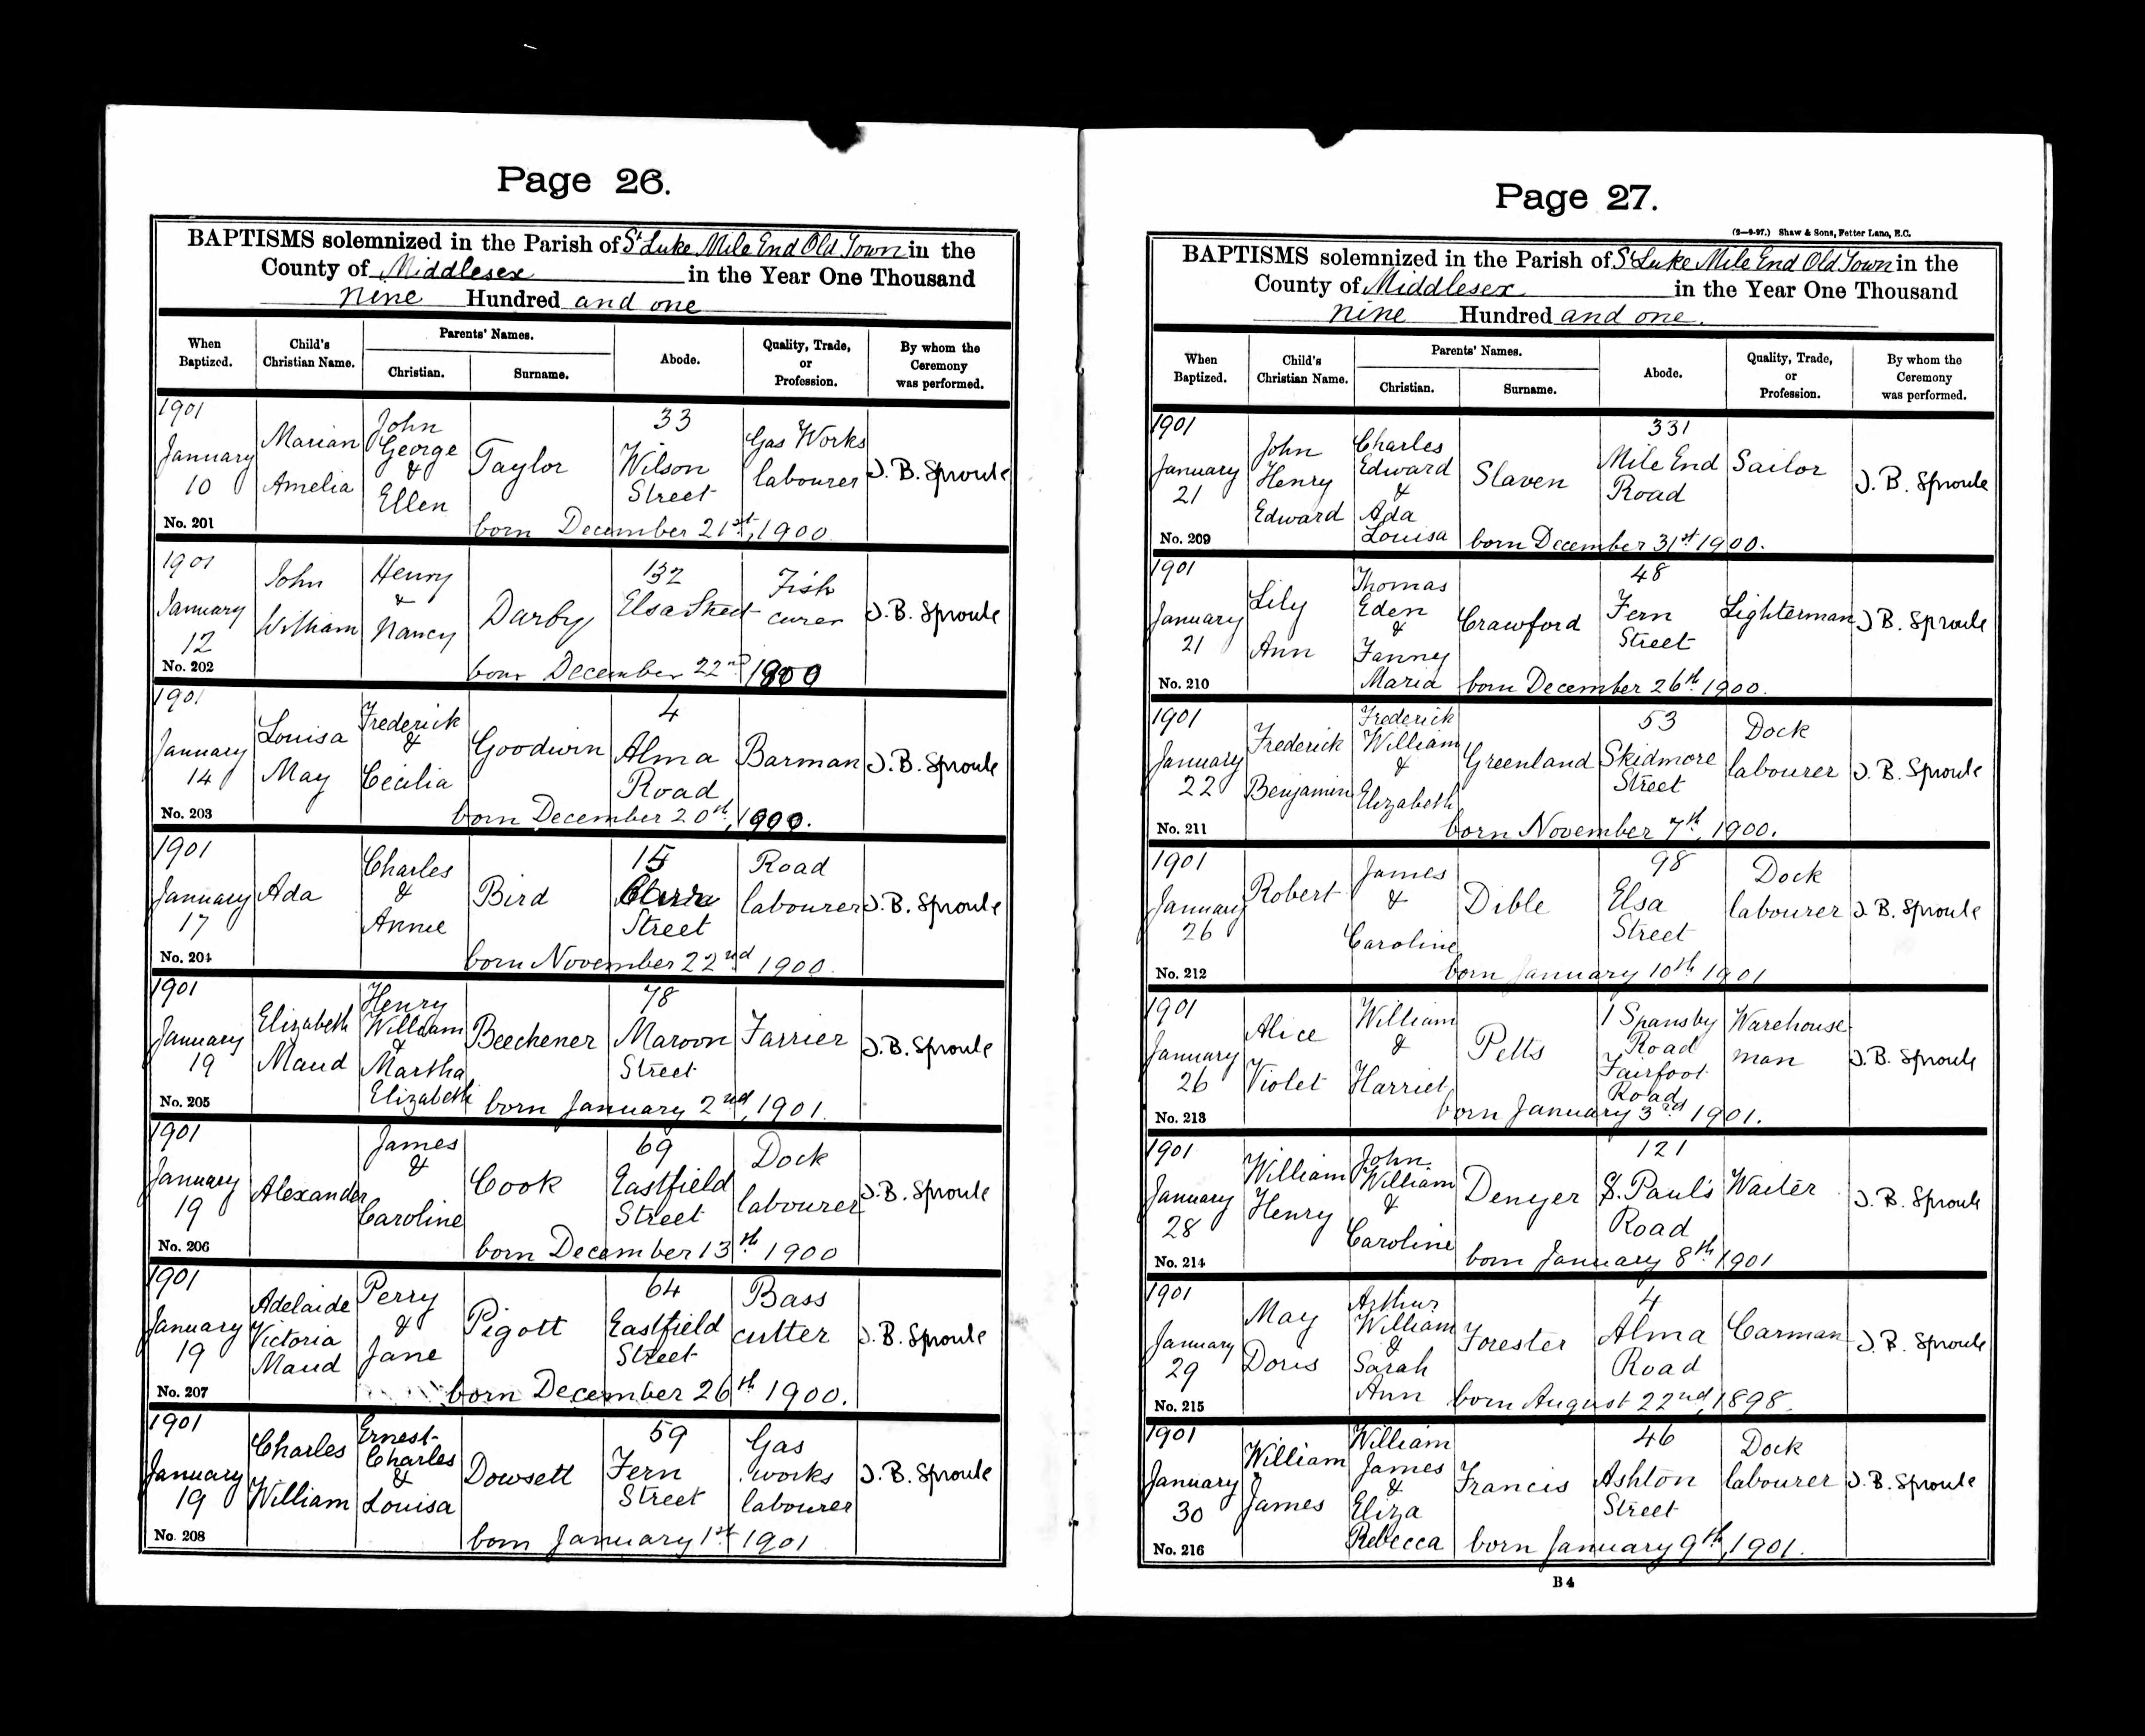 Page 26.
BAPTISMS solemnized in the Parish of St Luke Mile End Old Town in the
County of Middlesex in the Year One Thousand
nine Hundred and one
When Baptized. Child's Christian Name. Parents' Names. Christian. Surname. Abode. Quality, Trade, or Profession. By whom the Ceremony was performed.
1901 January 10 Marian Amelia John George & Ellen Taylor 33 Wilson Street Gas Works labourer J. B. Sproule
No. 201 born December 21st, 1900.
1901 January 12 John William Henry & Nancy Darby 132 Elsa Street Fish curer J. B. Sproule
No. 202 born December 22nd 1900
1901 January 14 Louisa May Frederick & Cecilia Goodwin 4 Alma Road Barman J. B. Sproule
No. 203 born December 20th, 1900.
1901 January 17 Ada Charles & Annie Bird 15 Street Road labourer J. B. Sproule
No. 204 born November 22nd 1900.
1901 January 19 Elizabeth Maud Henry William & Martha Elizabeth Beechener 78 Maroon Street Farrier J. B. Sproule
No. 205 born January 2nd, 1901.
1901 January 19 Alexander James & Caroline Cook 69 Eastfield Street Dock labourer J. B. Sproule
No. 206 born December 13th 1900
1901 January 19 Adelaide Victoria Maud Perry & Jane Pigott 64 Eastfield Street Bass cutter J. B. Sproule
No. 207 born December 26th 1900.
1901 January 19 Charles William Ernest Charles & Louisa Dowsett 59 Fern Street Gas works labourer J. B. Sproule
No. 208 born January 1st 1901
Page 27.
(2—9-97.) Shaw & Sons, Fetter Lane, E.C.
BAPTISMS solemnized in the Parish of St Luke Mile End Old Town in the
County of Middlesex in the Year One Thousand
nine Hundred and one.
When Baptized. Child's Christian Name. Parents' Names. Christian. Surname. Abode. Quality, Trade, or Profession. By whom the Ceremony was performed.
1901 January 21 John Henry Edward Charles Edward & Ada Louisa Slaven 331 Mile End Road Sailor J. B. Sproule
No. 209 born December 31st 1900.
1901 January 21 Lily Ann Thomas Eden & Fanny Maria Crawford 48 Fern Street Lighterman J. B. Sproule
No. 210 born December 26th 1900.
1901 January 22 Frederick Benjamin Frederick William & Elizabeth Greenland 53 Skidmore Street Dock labourer J. B. Sproule
No. 211 born November 7th, 1900.
1901 January 26 Robert James & Caroline Dible 98 Elsa Street Dock labourer J. B. Sproule
No. 212 born January 10th 1901
1901 January 26 Alice Violet William & Harriet Petts 1 Spansby Road Fairfoot Road Warehouse man J. B. Sproule
No. 213 born January 3rd 1901.
1901 January 28 William Henry John William & Caroline Denyer 121 St. Paul's Road Waiter J. B. Sproule
No. 214 born January 8th 1901
1901 January 29 May Doris Arthur William & Sarah Ann Forester 4 Alma Road Carman J. B. Sproule
No. 215 born August 22nd, 1898.
1901 January 30 William James William James & Eliza Rebecca Francis 46 Ashton Street Dock labourer J. B. Sproule
No. 216 born January 9th, 1901.
B 4